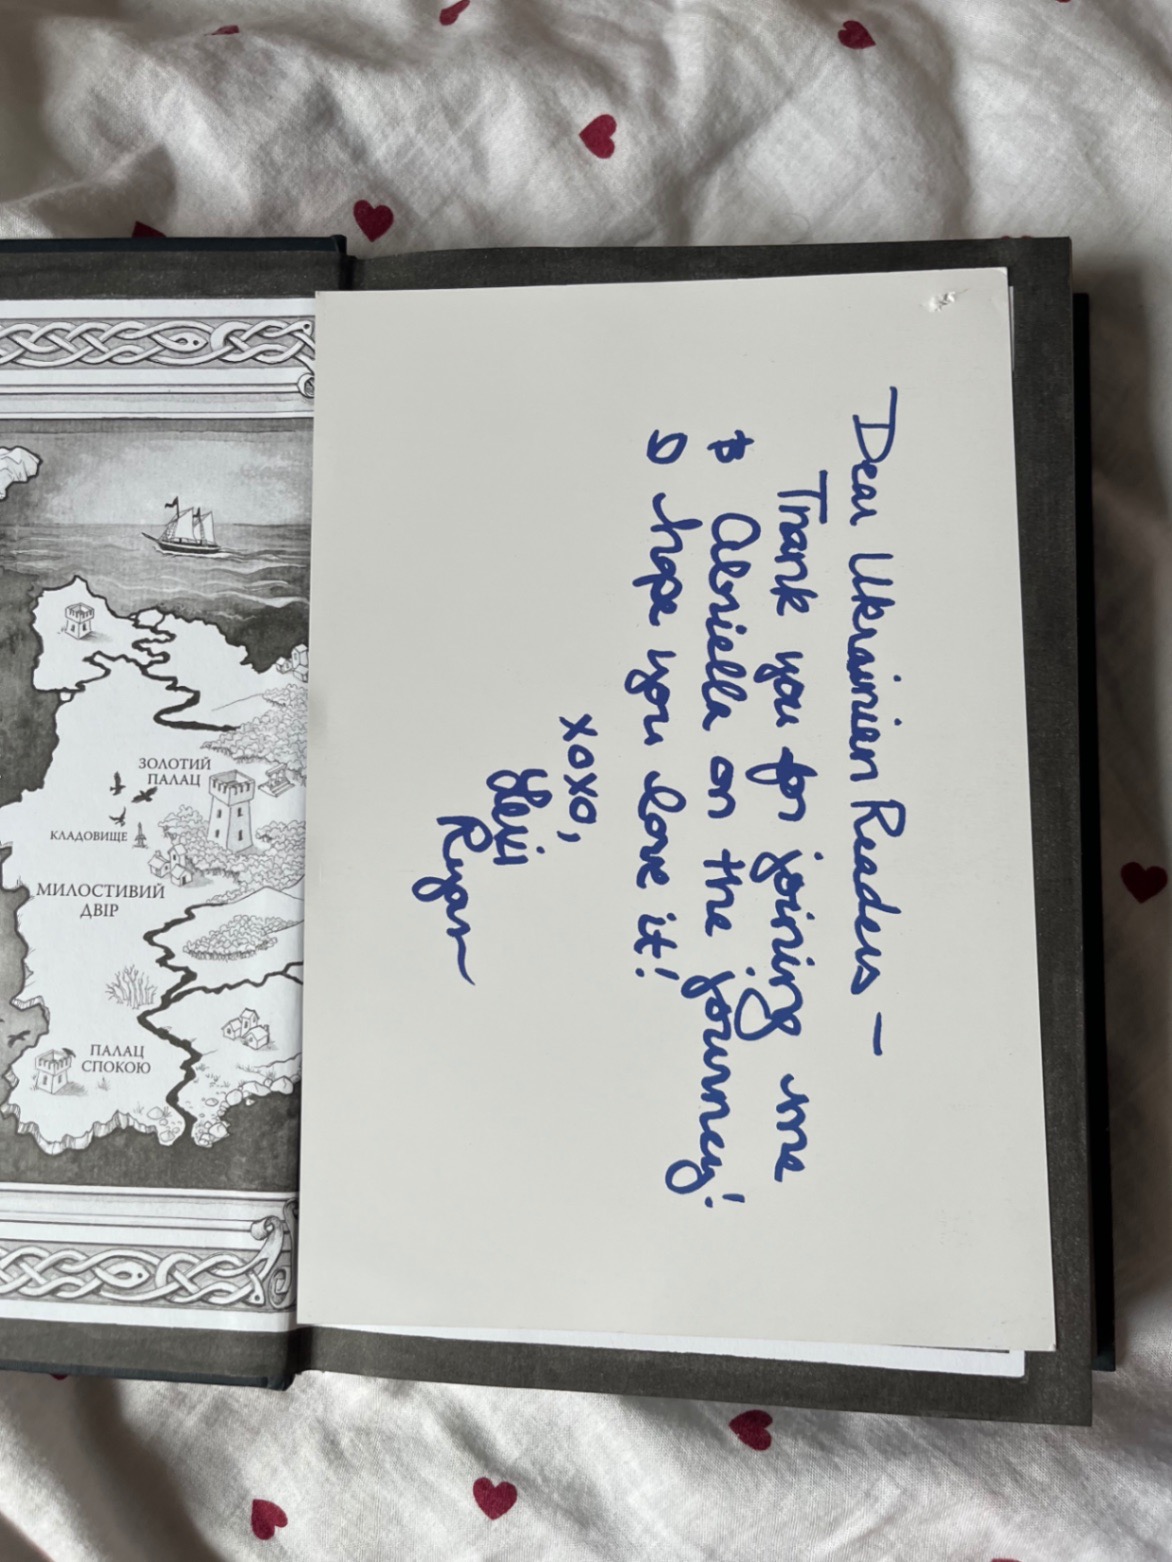 ЗОЛОТИЙ
ПАЛАЦ
КЛАДОВИЩЕ
МИЛОСТИВИЙ
ДВІР
ПАЛАЦ
СПОКОЮ
Dear Ukrainien Readers –
Thank you for joining me
& Abriella on the journey!
I hope you love it!
xoxo,
Lexi
Ryan